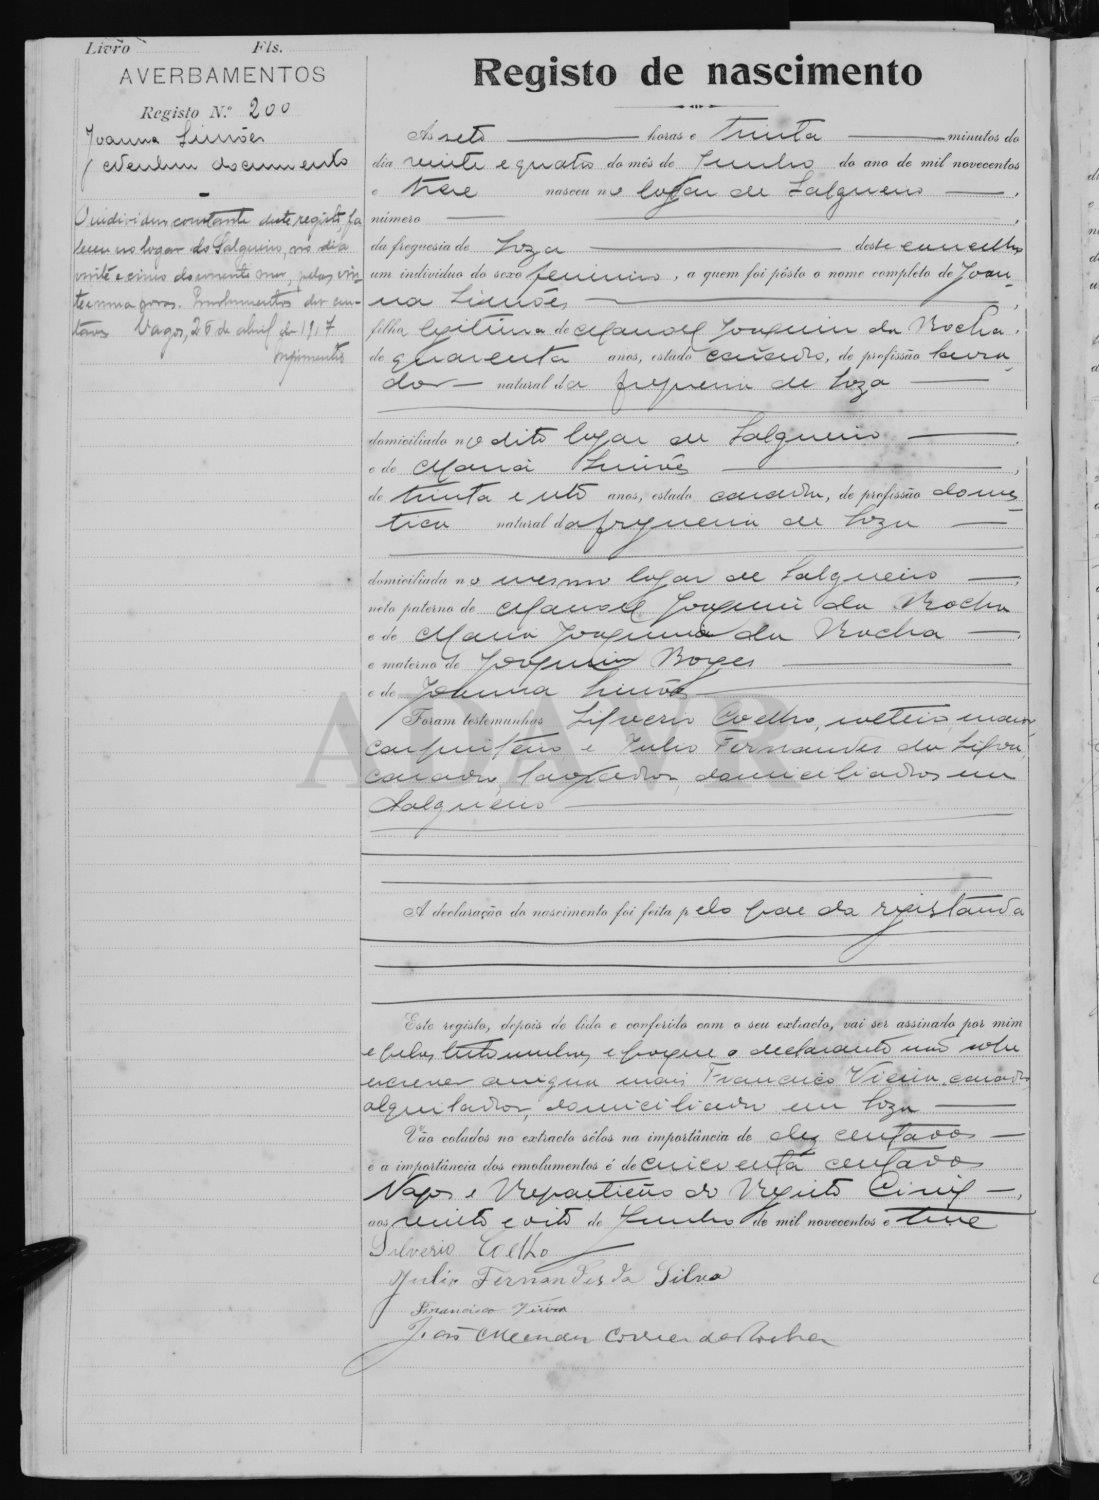 Livro Fls.
AVERBAMENTOS
Registo N.º 200
Joanna Simões
Nenhum documento
O individuo constante deste registo fa
leceu no logar do Salgueiro, no dia
vinte e cinco do corrente mez, pelas vin
te e uma horas. Emolumentos dez cen
tavos Vagos, 26 de abril de 1917
Registo de nascimento
Ás sete horas e trinta minutos do
dia vinte e quatro do mês de Junho do ano de mil novecentos
e treze nasceu no logar de Salgueiro
número
da freguesia de Soza deste concelho
um individuo do sexo feminino, a quem foi pôsto o nome completo de Joan-
na Simões
filha legitima de Manoel Joaquim da Rocha
de quarenta anos, estado casado, de profissão lavra-
dor natural da freguesia de Soza
domiciliado no dito logar de Salgueiro
e de Maria Simões
de trinta e oito anos, estado casada, de profissão domes-
tica natural da freguesia de Soza
domiciliada no mesmo logar de Salgueiro
neto paterno de Manoel Joaquim da Rocha
e de Maria Joaquina da Rocha
e materno de Joaquim Borges
e de Joanna Simões
ADAVR
Foram testemunhas Silverio Coelho, solteiro, maior,
carpinteiro e Julio Fernandes da Silva,
casado, lavrador, domiciliados em
Salgueiro
A declaração do nascimento foi feita pelo pae da registanda
Este registo, depois de lido e conferido com o seu extracto, vai ser assinado por mim
e pelas testemunhas, e porque o declarante não sabe
escrever assigna mais Francisco Vieira, casado
alquilador, domiciliado em Soza
Vão colados no extracto sêlos na importância de dez centavos
e a importância dos emolumentos é de cincoenta centavos
Vagos e Repartição do Registo Civil
aos vinte e oito de Junho de mil novecentos e treze
Silverio Coelho
Julio Fernandes da Silva
Francisco Vieira
João Mendes Correia da Rocha